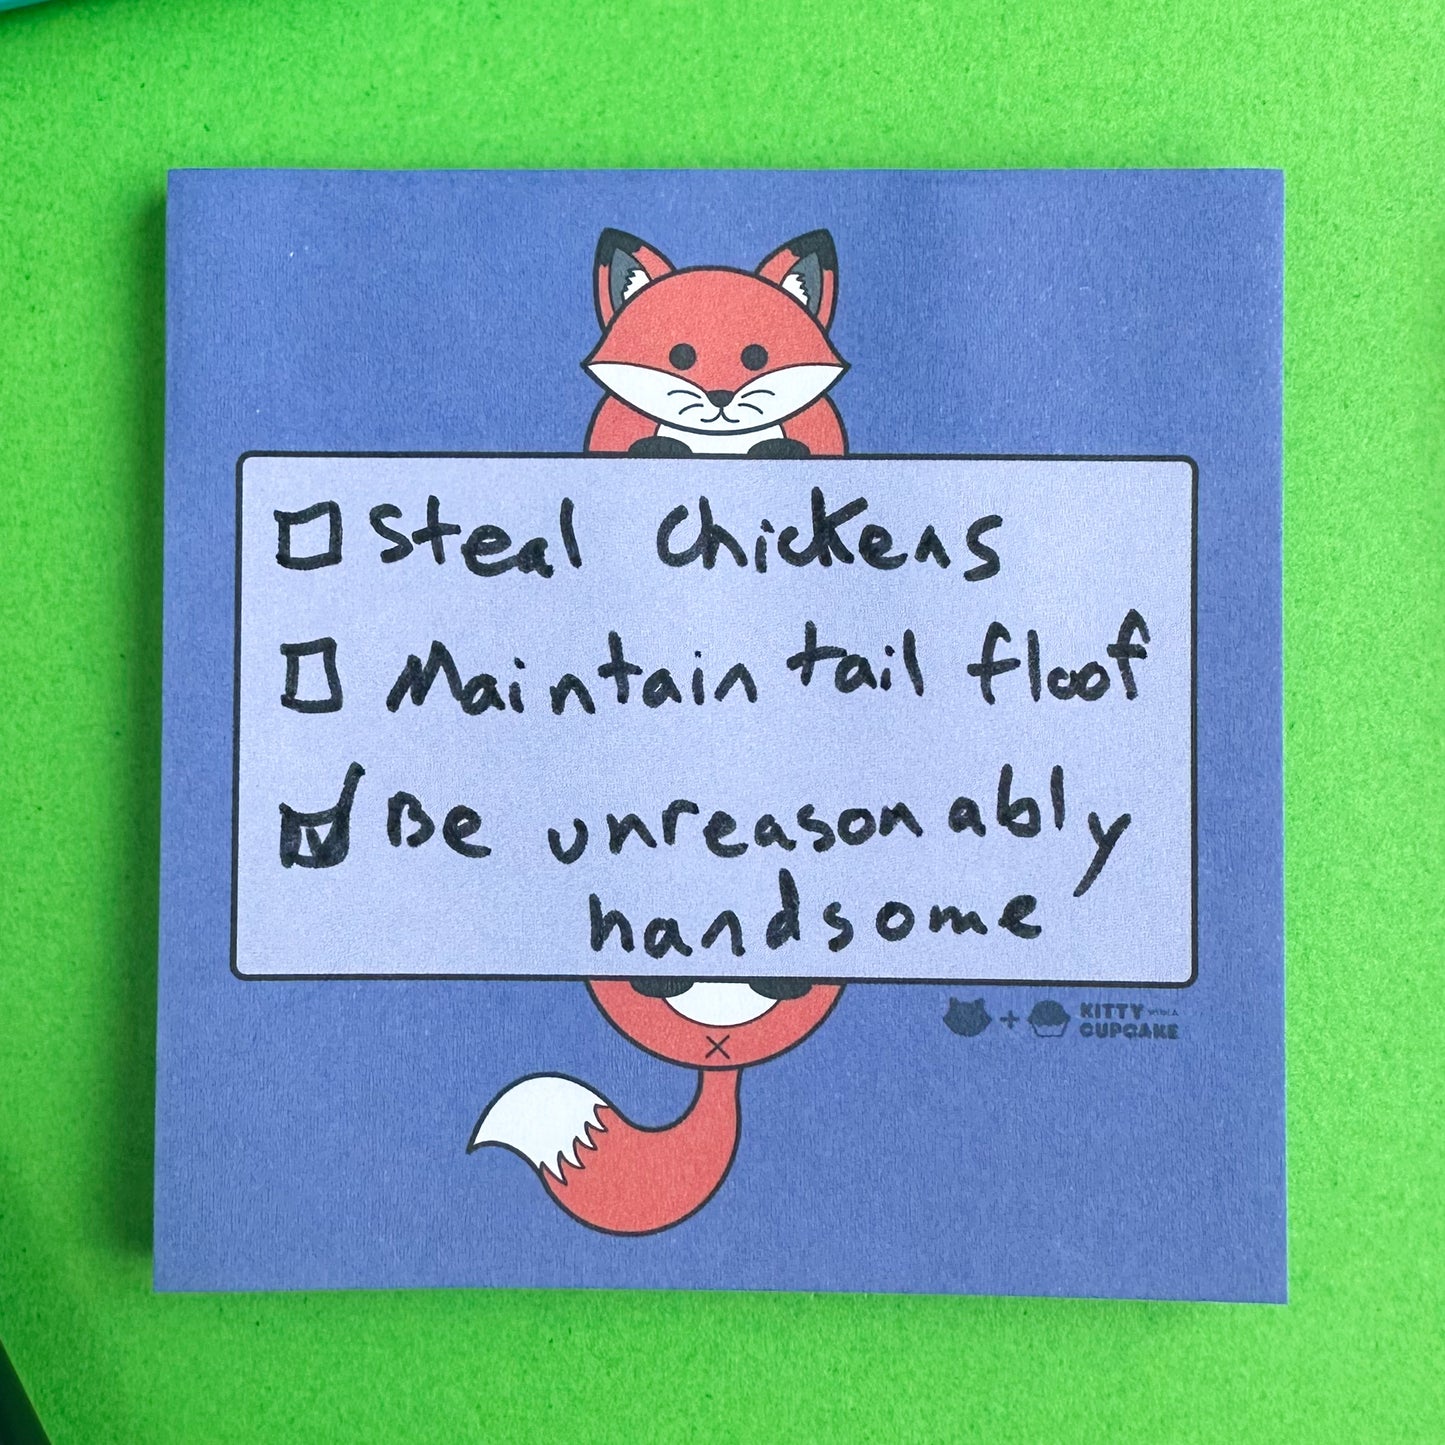 ☐ Steal Chickens
☐ Maintain tail floof
☑ Be unreasonably
handsome
+ KITTY WITH A
CUPCAKE